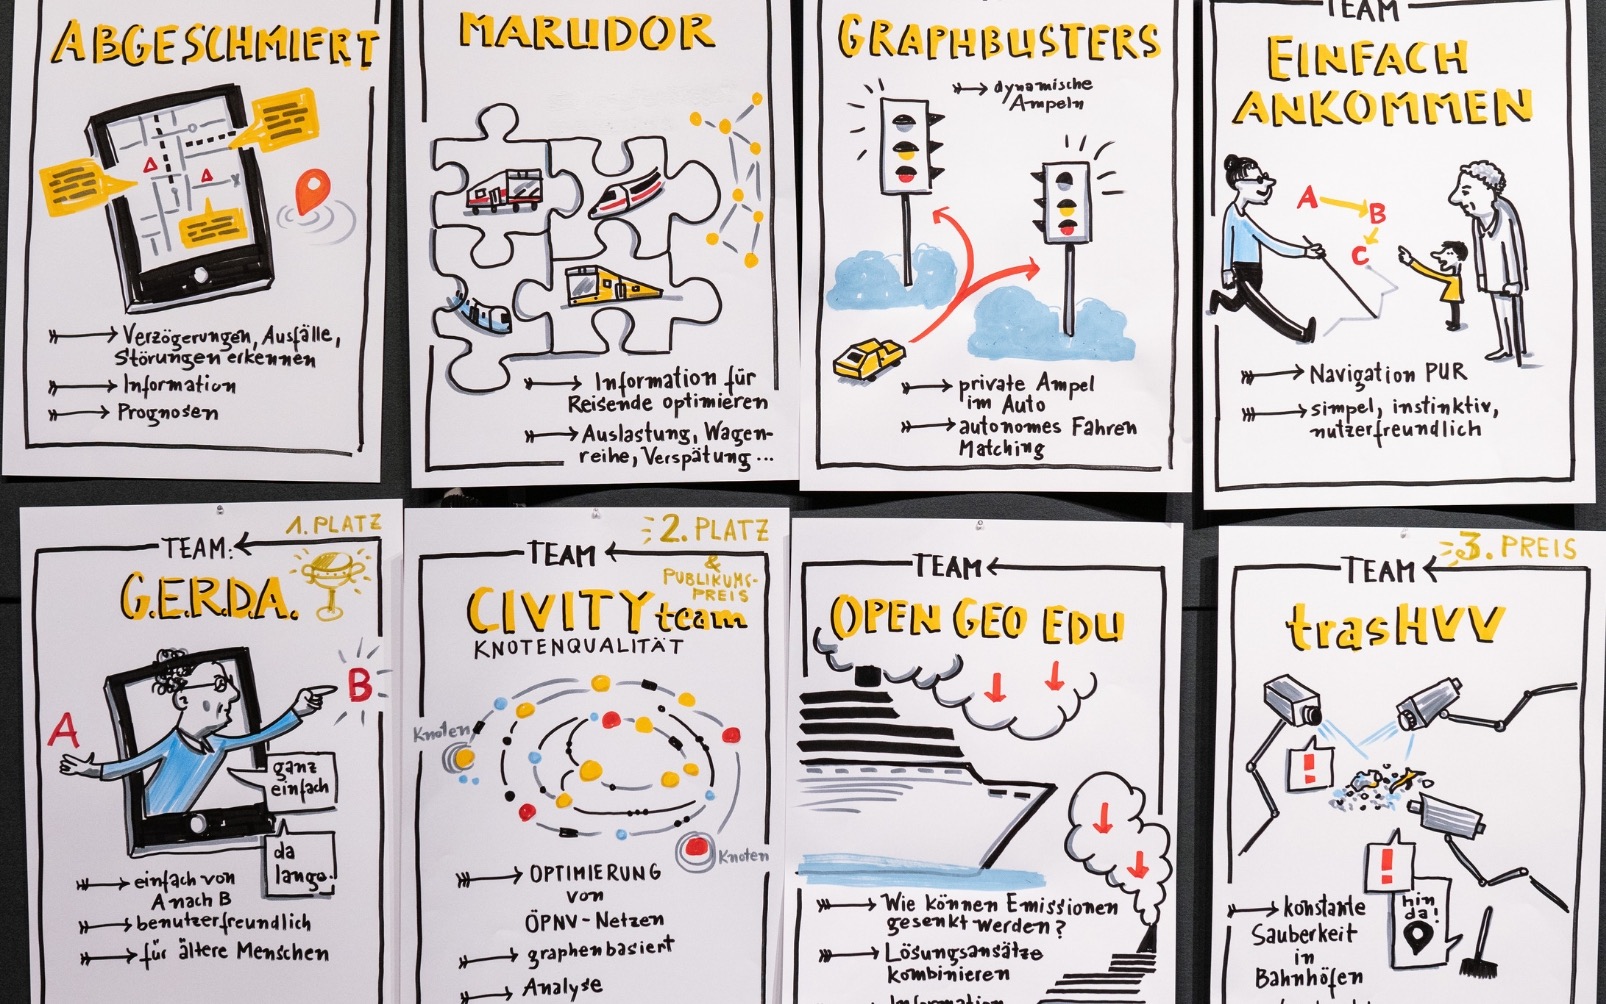 ABGESCHMIERT
Verzögerungen, Ausfälle,
Störungen erkennen
Information
Prognosen
MARUDOR
Information für
Reisende optimieren
Auslastung, Wagen-
reihe, Verspätung...
GRAPHBUSTERS
dynamische
Ampeln
private Ampel
im Auto
autonomes Fahren
Matching
TEAM
EINFACH
ANKOMMEN
A
B
C
Navigation PUR
simpel, instinktiv,
nutzerfreundlich
1. PLATZ
TEAM:
G.E.R.D.A.
A
B
ganz
einfach
da
lang.
einfach von
A nach B
benutzerfreundlich
für ältere Menschen
2. PLATZ
&
PUBLIKUMS-
PREIS
TEAM
CIVITY team
KNOTENQUALITÄT
Knoten
Knoten
OPTIMIERUNG
von
ÖPNV-Netzen
graphenbasiert
Analyse
TEAM
OPEN GEO EDU
Wie können Emissionen
gesenkt werden?
Lösungsansätze
kombinieren
Information
3. PREIS
TEAM
trasHVV
!
!
hin
da!
konstante
Sauberkeit
in
Bahnhöfen